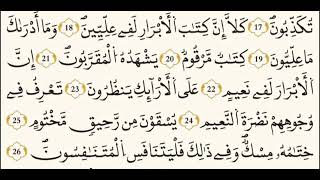 تُكَذِّبُونَ ۝١٧ كَلَّآ إِنَّ كِتَٰبَ ٱلْأَبْرَارِ لَفِى عِلِّيِّينَ ۝١٨ وَمَآ أَدْرَىٰكَ
مَا عِلِّيُّونَ ۝١٩ كِتَٰبٌ مَّرْقُومٌ ۝٢٠ يَشْهَدُهُ ٱلْمُقَرَّبُونَ ۝٢١ إِنَّ
ٱلْأَبْرَارَ لَفِى نَعِيمٍ ۝٢٢ عَلَى ٱلْأَرَآئِكِ يَنظُرُونَ ۝٢٣ تَعْرِفُ فِى
وُجُوهِهِمْ نَضْرَةَ ٱلنَّعِيمِ ۝٢٤ يُسْقَوْنَ مِن رَّحِيقٍ مَّخْتُومٍ ۝٢٥
خِتَٰمُهُۥ مِسْكٌ ۚ وَفِى ذَٰلِكَ فَلْيَتَنَافَسِ ٱلْمُتَنَٰفِسُونَ ۝٢٦